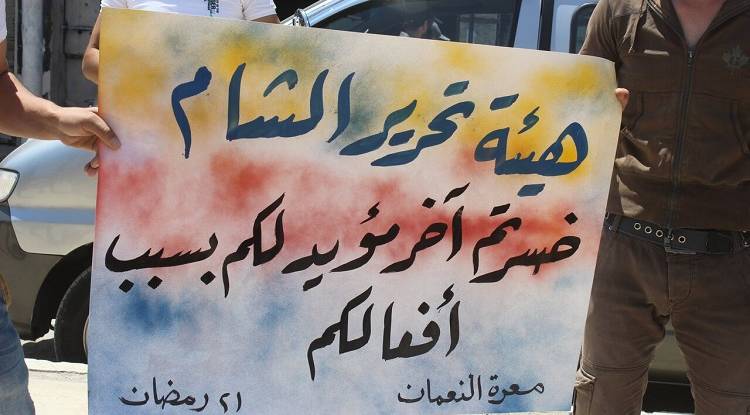 هيئة تحرير الشام
خسرتم آخر مؤيد لكم بسبب
أفعالكم
معرة النعمان ٢١ رمضان